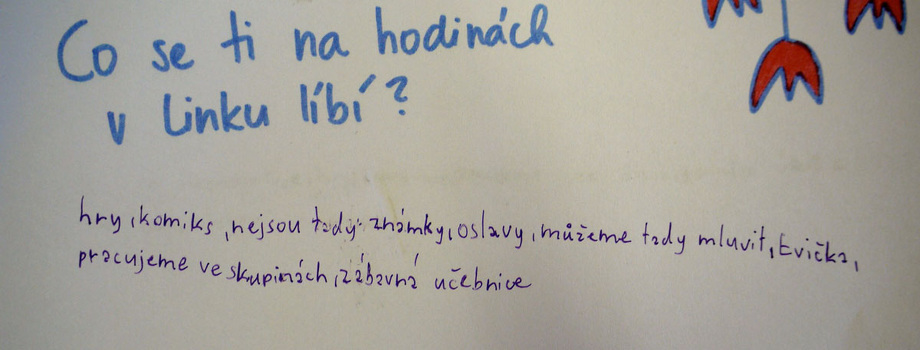 Co se ti na hodinách
v Linku líbí?
hry, komiks, nejsou tady známky, oslavy, můžeme tady mluvit, Evička,
pracujeme ve skupinách, zábavná učebnice